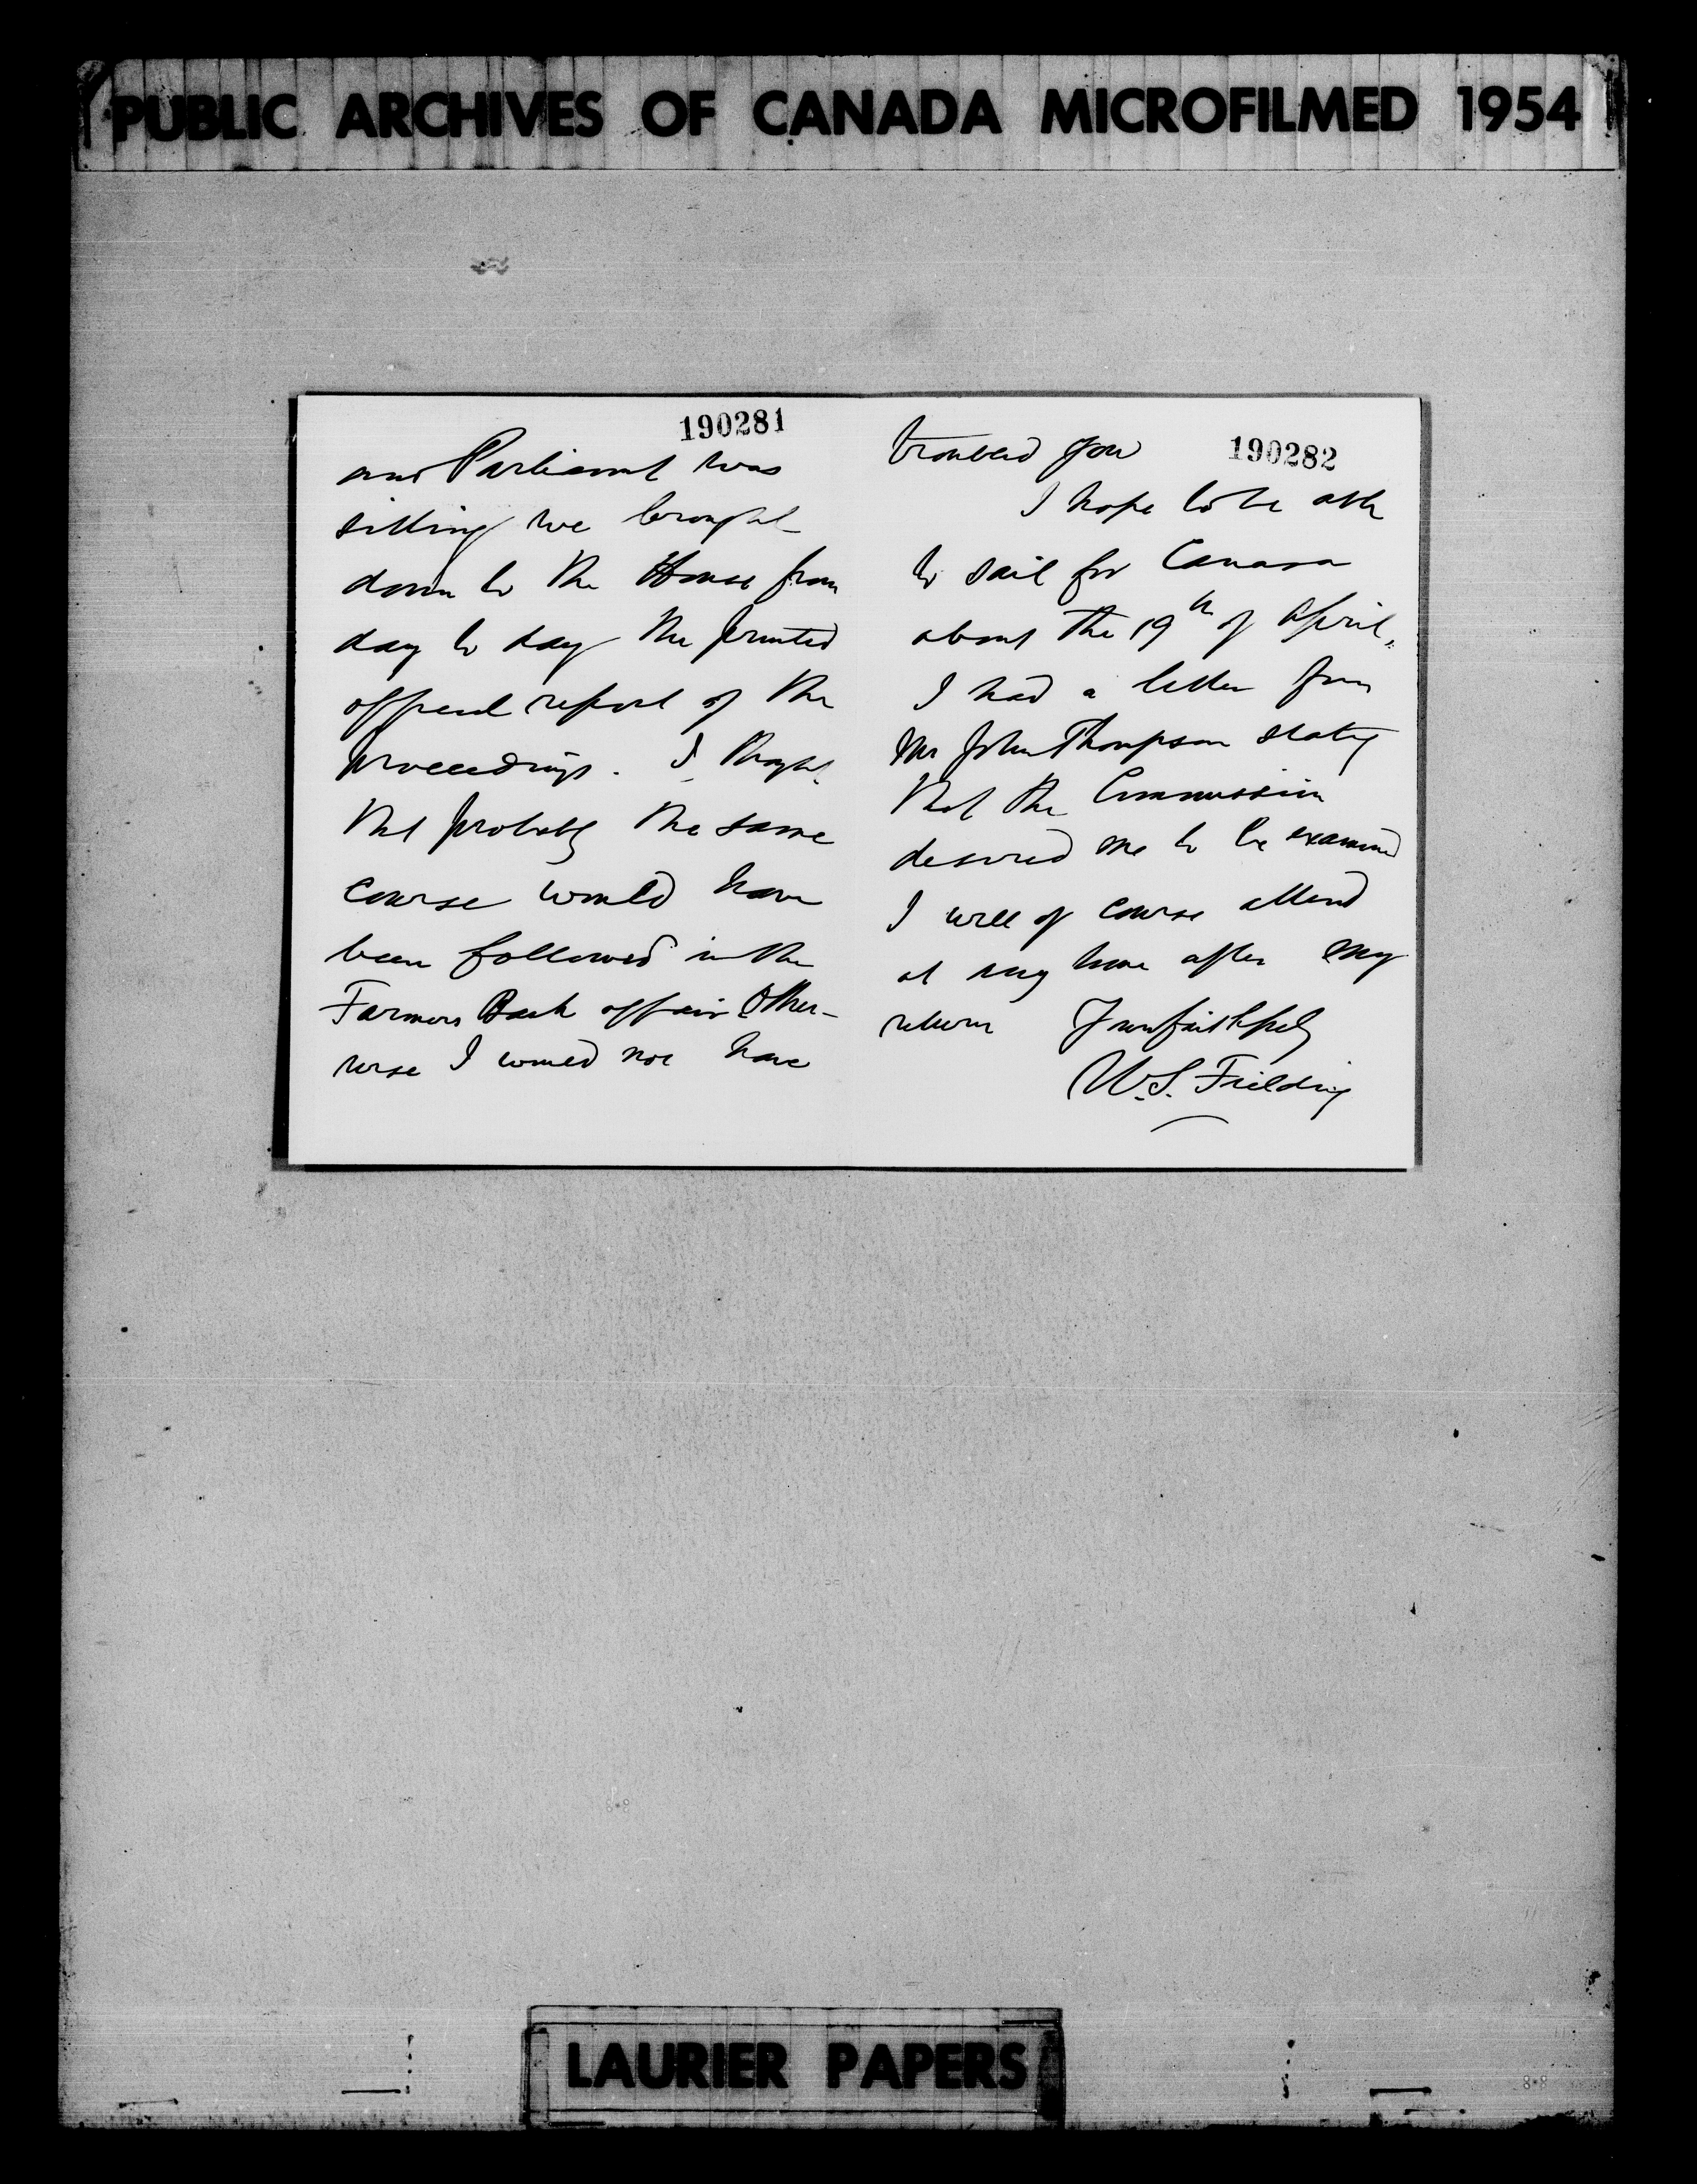 PUBLIC ARCHIVES OF CANADA MICROFILMED 1954
190281
and Parliament was
sitting we brought
down to the House from
day to day the printed
official report of the
proceedings. I thought
that probably the same
course would have
been followed in the
Farmers Bank affair. Other-
wise I would not have
190282
troubled you
I hope to be able
to sail for Canada
about the 19th of April.
I had a letter from
Mr John Thompson stating
that the Commission
desired me to be examined
I will of course attend
at any time after my
return Yours faithfully
W.S. Fielding
LAURIER PAPERS